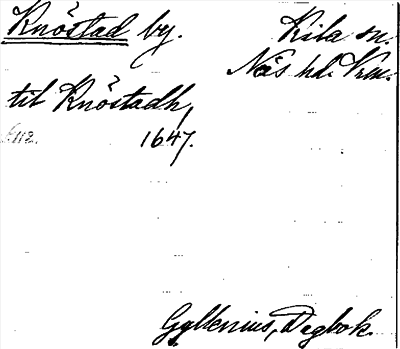 Knöstad by. Kila sn.
Näs hd. Vrm.
til Knöstadh,
1647.
Gyllenius, Dagbok.